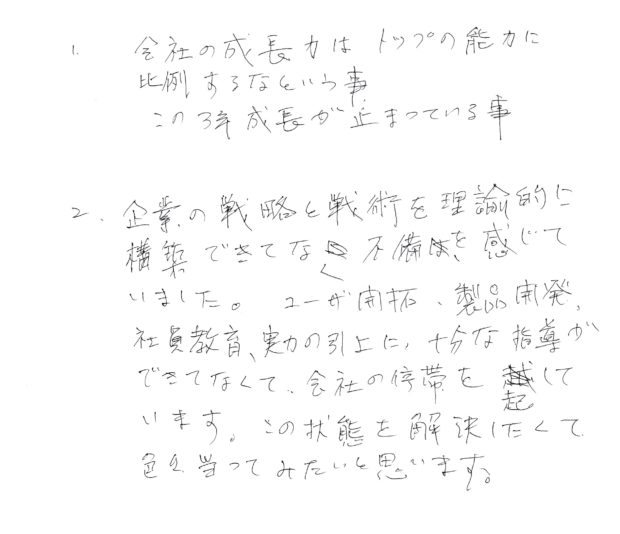 1. 会社の成長力はトップの能力に
比例するなという事
この3年成長が止まっている事
2. 企業の戦略と戦術を理論的に
構築できてなく 不備を感じて
いました。ユーザ開拓、製品開発、
社員教育、実力の引上に、十分な指導が
できてなくて、会社の停滞を起して
います。この状態を解決したくて
色々当ってみたいと思います。